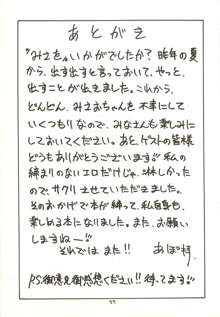 あとがき
"みさき"いかがでしたか?昨年の夏
から、出す出すと言っておいて、やっと、
出すことが出来ました。これから、
どんどん、みさおちゃんを不幸にして
いくつもりなので、みなさんも楽しみに
していてください。あと、ゲストの皆様
どうもありがとうございます 私の
締まりのないエロだけじゃ、淋しかった
ので、サクリ させていただきました。
そのおかげで本が締って、私自身も、
楽しめる本になりました。また、お願い
しますねー
それでは また!!
P.S.御意見御感想ください!!待ってます